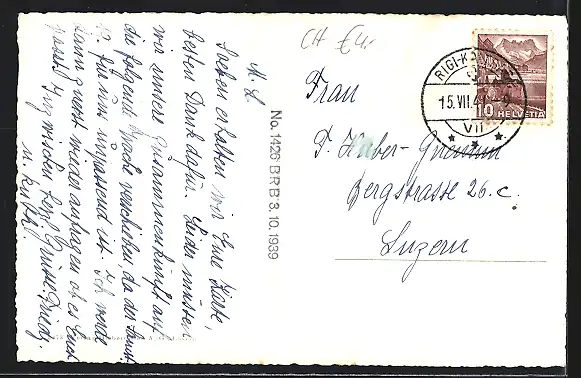 M. L.
Soeben erhalten wir Eure Karte,
besten Dank dafür. Leider müssen
wir unsere Zusammenkunft auf
die folgende Woche verschieben, da der
für uns unpassend ist. Ich werde
dann zuerst wieder anfragen ob es Euch
passt. Inzwischen herzl. Grüsse Friedy.
u. Küsse!
No. 1426 B R B 3. 10. 1939
CH €4.-
RIGI-K
15. VII. 4 -9
VII
10 HELVETIA
Frau
Huber-
Bergstrasse 26. c.
Luzern